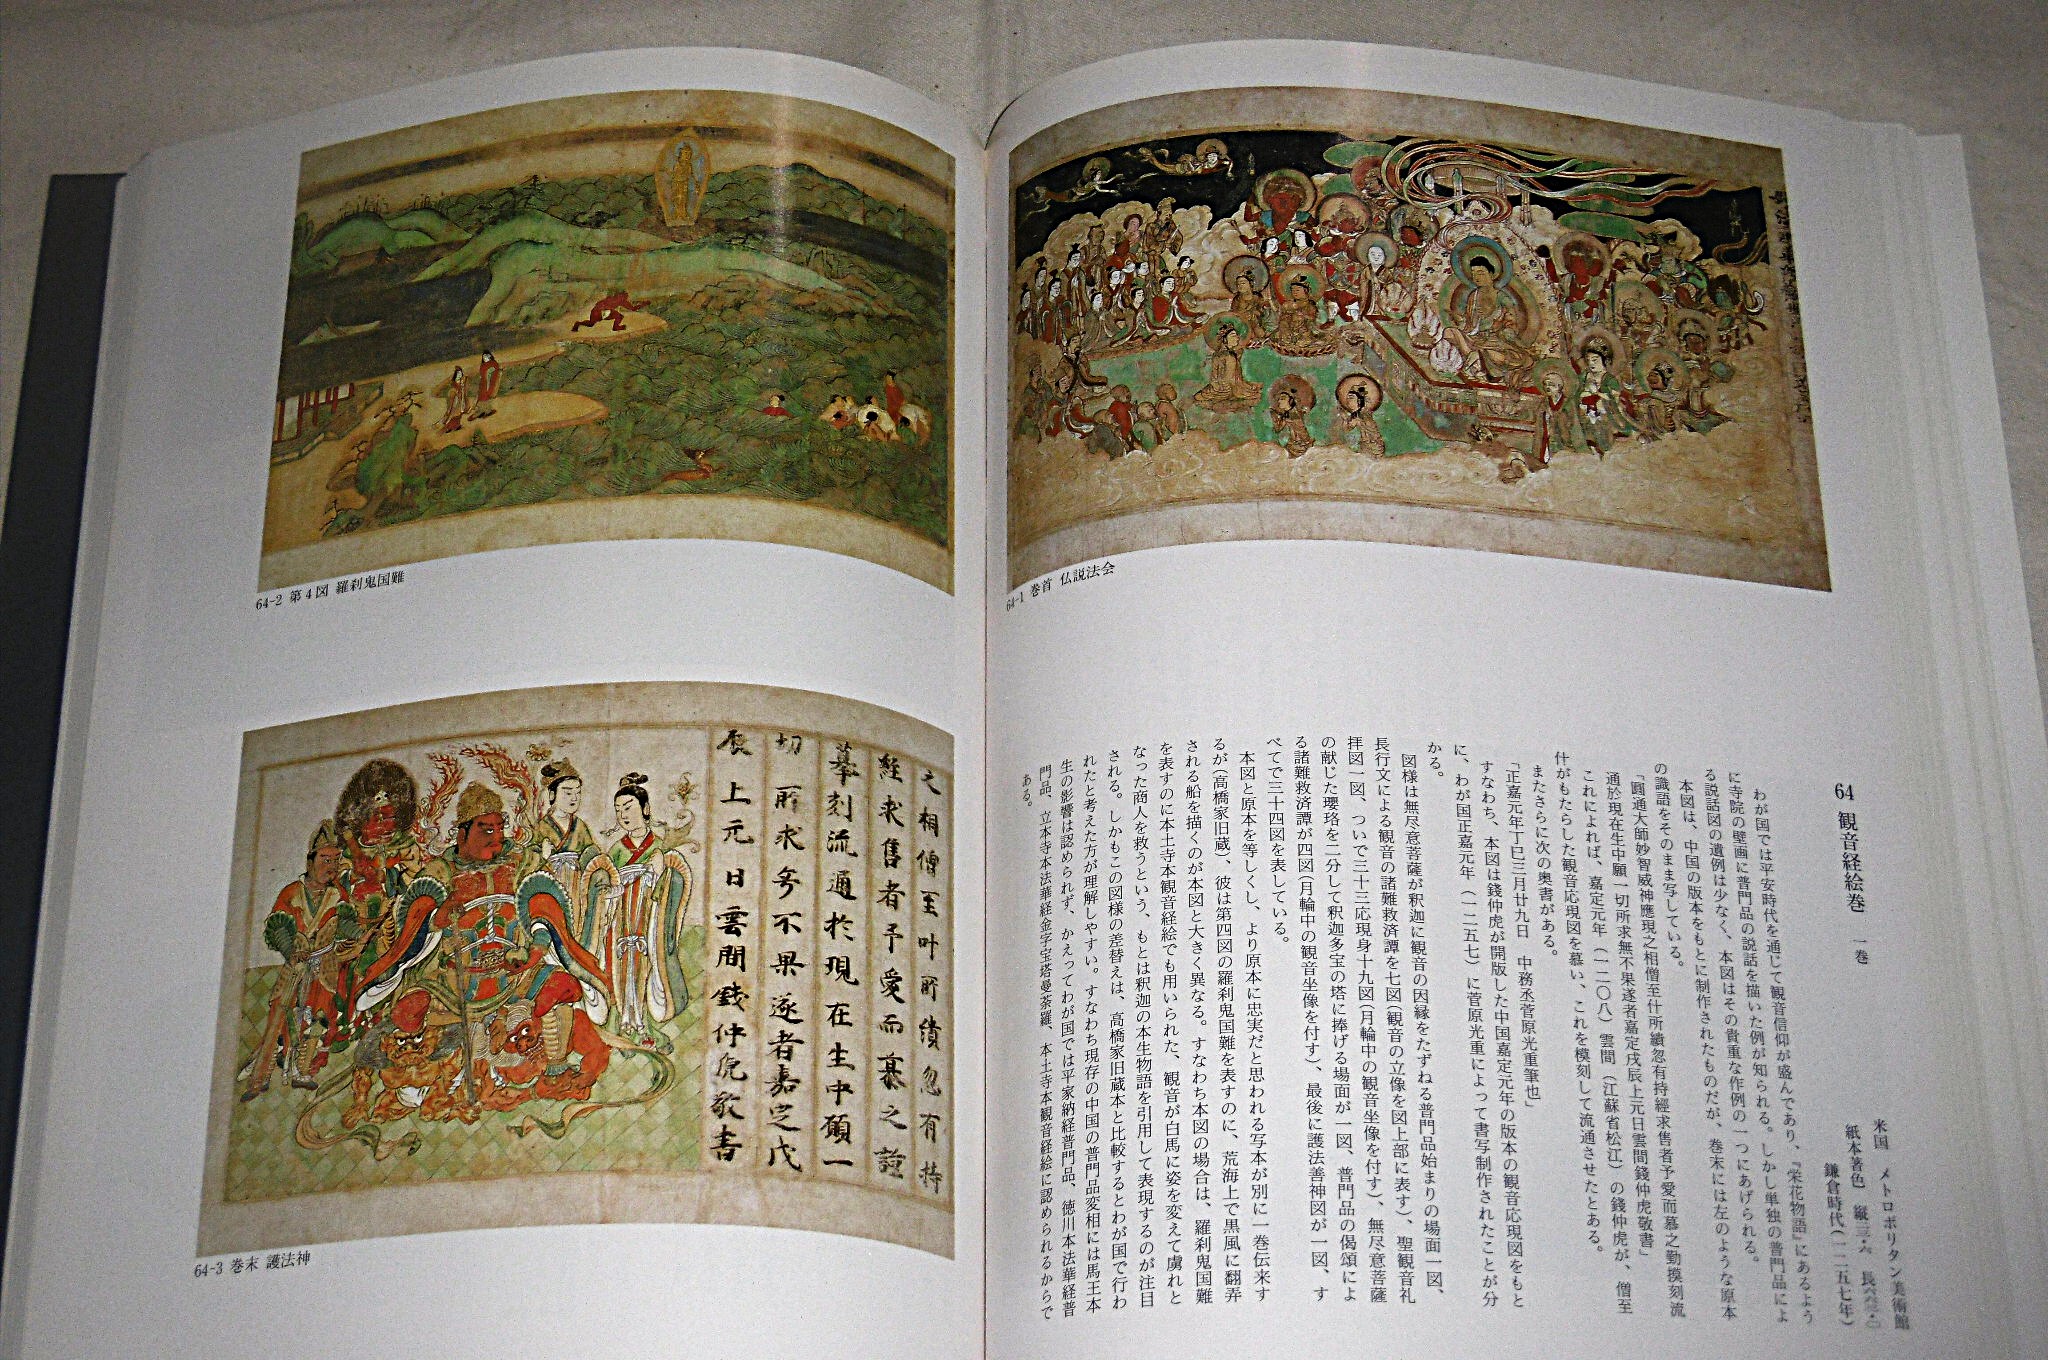 64 観音経絵巻 一巻
米国 メトロポリタン美術館
紙本著色
鎌倉時代(一二五七年)
わが国では平安時代を通じて観音信仰が盛んであり、『栄花物語』にあるよう
に寺院の壁画に普門品の説話を描いた例が知られる。しかし単独の普門品によ
る説話図の遺例は少なく、本図はその貴重な作例の一つにあげられる。
本図は、中国の版本をもとに制作されたものだが、巻末には左のような原本
の識語をそのまま写している。
「圓通大師妙智威神應現之相僧至什所績忽有持經求售者予愛而慕之勤摸刻流
通於現在生中願一切所求無不果遂者嘉定戌辰上元日雲間錢仲虎敬書」
これによれば、嘉定元年(一二〇八)雲間(江蘇省松江)の錢仲虎が、僧至
什がもたらした観音応現図を慕い、これを模刻して流通させたとある。
またさらに次の奥書がある。
「正嘉元年丁巳三月廿九日 中務丞菅原光重筆也」
すなわち、本図は錢仲虎が開版した中国嘉定元年の版本の観音応現図をもと
に、わが国正嘉元年(一二五七)に菅原光重によって書写制作されたことが分
かる。
図様は無尽意菩薩が釈迦に観音の因縁をたずねる普門品始まりの場面一図、
長行文による観音の諸難救済譚を七図(観音の立像を図上部に表す)、聖観音礼
拝図一図、ついで三十三応現身十九図(月輪中の観音坐像を付す)、無尽意菩薩
の献じた瓔珞を二分して釈迦多宝の塔に捧げる場面が一図、普門品の偈頌によ
る諸難救済譚が四図(月輪中の観音坐像を付す)、最後に護法善神図が一図、す
べてで三十四図を表している。
本図と原本を等しくし、より原本に忠実だと思われる写本が別に一巻伝来す
るが(高橋家旧蔵)、彼は第四図の羅刹鬼国難を表すのに、荒海上で黒風に翻弄
される船を描くのが本図と大きく異なる。すなわち本図の場合は、羅刹鬼国難
を表すのに本土寺本観音経絵でも用いられた、観音が白馬に姿を変えて虜れと
なった商人を救うという、もとは釈迦の本生物語を引用して表現するのが注目
される。しかもこの図様の差替えは、高橋家旧蔵本と比較するとわが国で行わ
れたと考えた方が理解しやすい。すなわち現存の中国の普門品変相には馬王本
生の影響は認められず、かえってわが国では平家納経普門品、徳川本法華経普
門品、立本寺本法華経金字宝塔曼荼羅、本土寺本観音経絵に認められるからで
ある。
64-1 巻首 仏説法会
64-2 第4図 羅刹鬼国難
之相僧至叶所績忽有持
經求售者予愛而慕之謹
摹刻流通於現在生中願一
切所求無不果遂者嘉定戊
辰上元日雲間錢仲虎敬書
64-3 巻末 護法神